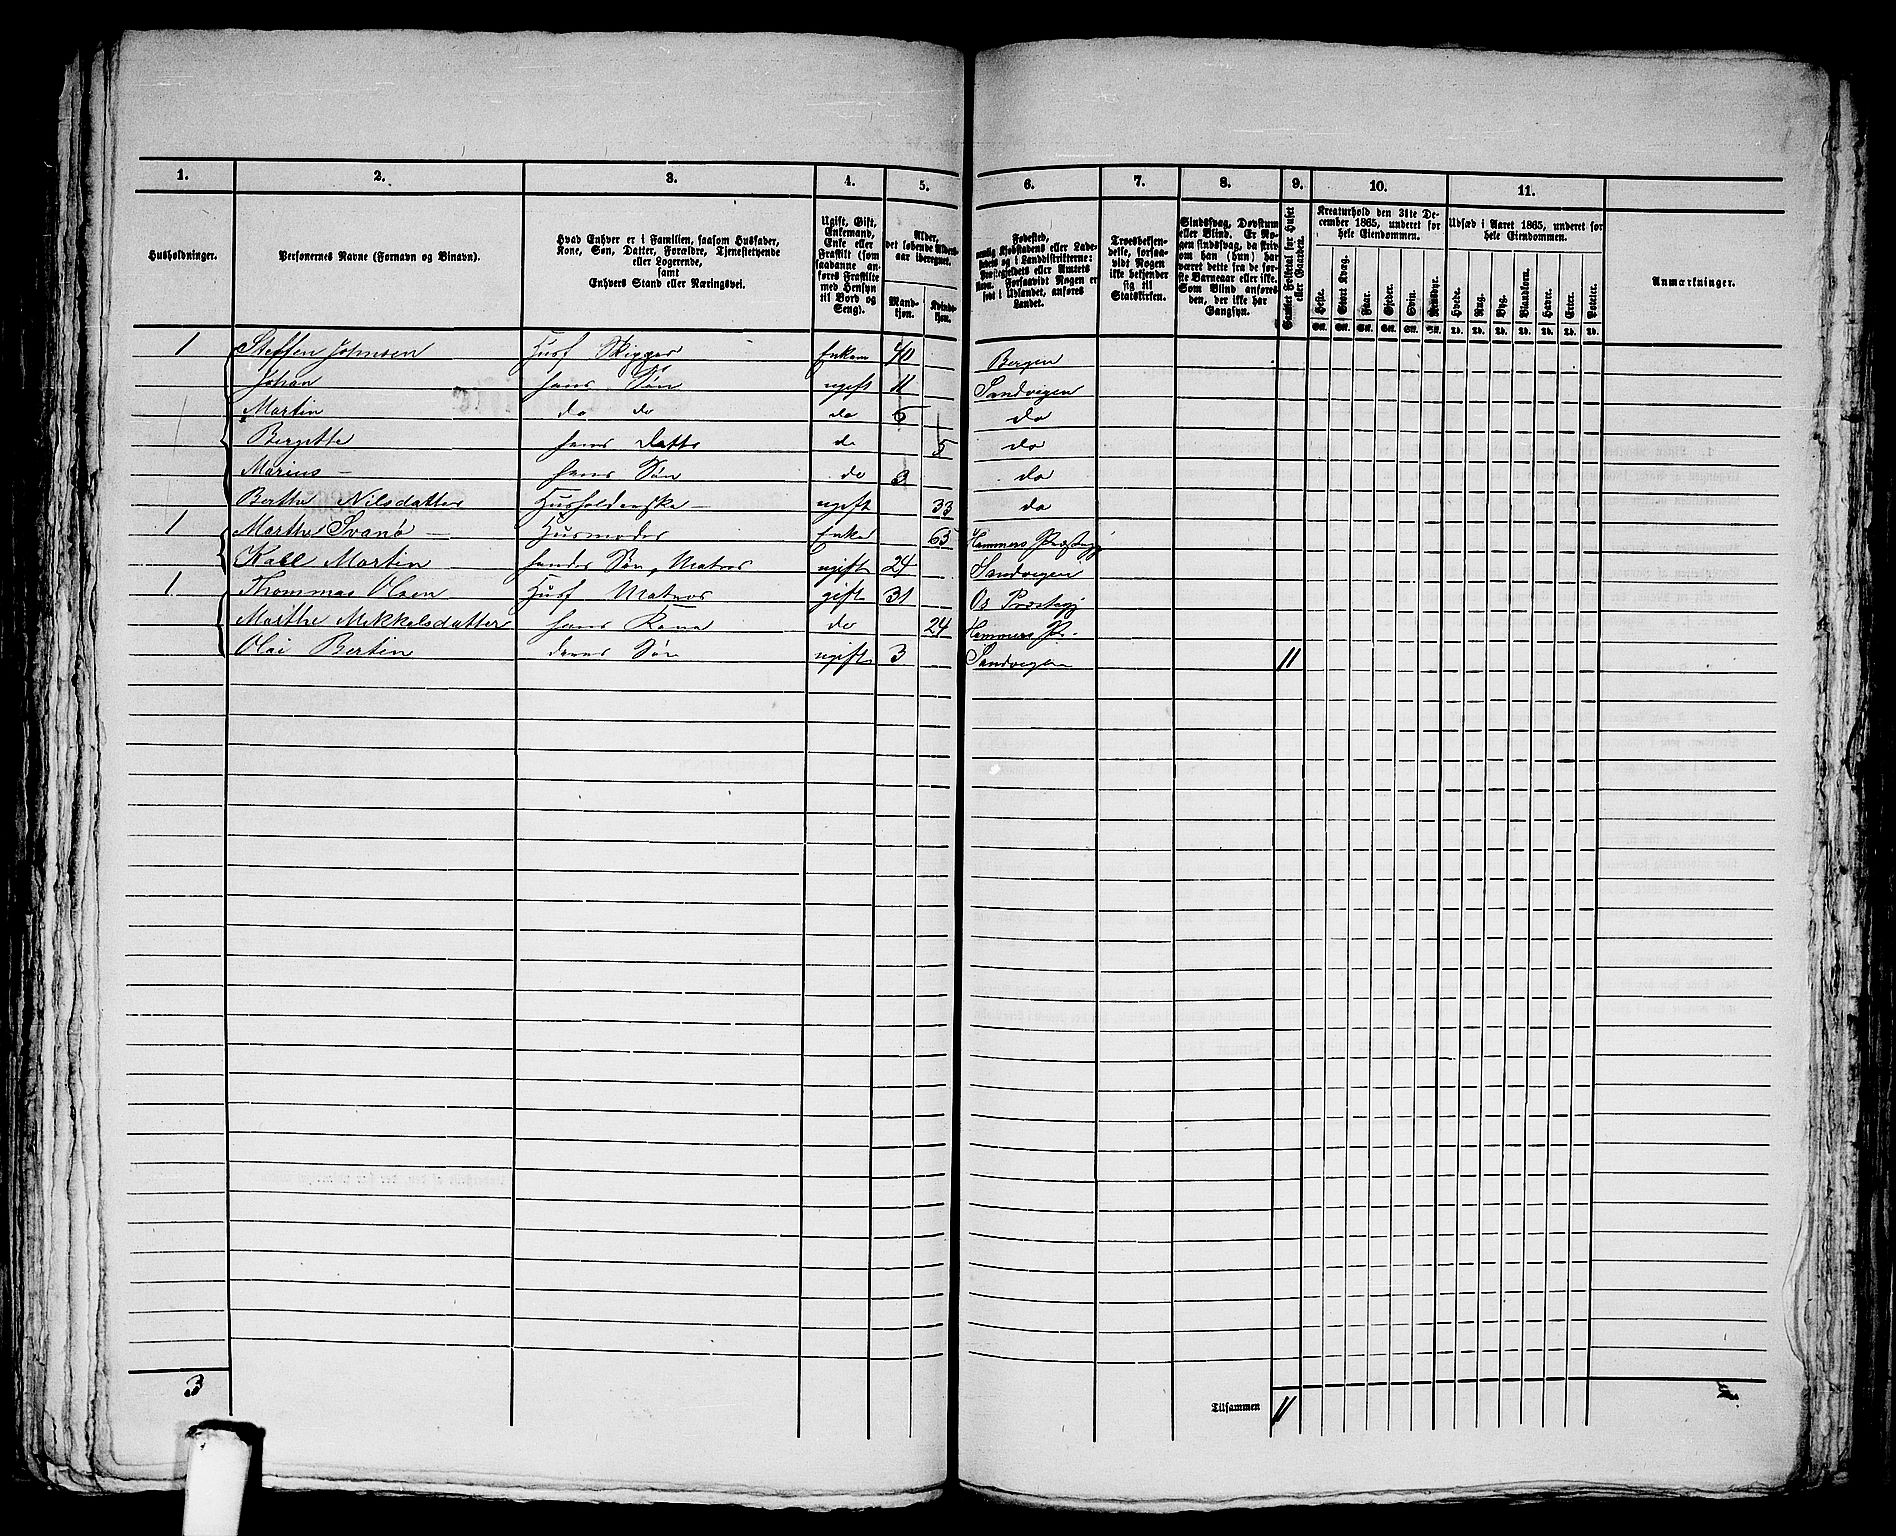 1. 2. 3. 4. 5. 6. 7. 8. 9. 10. 11.
Husholdninger.
Personernes Navne (Fornavn og Binavn).
Hvad Enhver er i Familien, saasom Husfader,
Kone, Søn, Datter, Forældre, Tjenestetyende
eller Logerende,
samt
Enhvers Stand eller Næringsvei.
Ugift, Gift,
Enkemand,
Enke eller
Fraskilt (som
saadanne an-
føres Fraskilte
med Hensyn
til Bord og
Seng).
Alder,
det løbende Alders-
aar iberegnet.
Mand-
kjøn.
Kvind-
kjøn.
Fødested,
nemlig Kjøbstadens eller Lade-
stedets og i Landdistrikterne:
Præstegjeldets eller Amtets
Navn. Forsaavidt Nogen er
født i Udlandet, anføres
Landet.
Troesbekjen-
delse, forsaa-
vidt Nogen
ikke bekjender
sig til
Statskirken.
Sindssvag, Døvstum
eller Blind. Er No-
gen sindssvag, da skriv
om han (hun) har
været dette fra de før-
ste Barneaar eller ikke.
Som Blind anføres
den, der ikke har
Gangsyn.
Samlet Folketal for Huset
eller Gaarden.
Kreaturhold den 31te De-
cember 1865, underet for
hele Eiendommen.
Heste. Stort Kvæg. Faar. Gjeder. Svin. Rensdyr.
St. St. St. St. St. St.
Udsæd i Aaret 1865, underet for
hele Eiendommen.
Hvede. Rug. Byg. Blandkorn. Havre. Erter. Poteter.
Td. Td. Td. Td. Td. Td. Td.
Anmærkninger.
1 Steffen Johnsen Husf Skipper Enkem 40 Bergen
Johan hans Søn ugift 11 Sandvigen
Martin do do do 6 do
Bergitte hans Datter do 5 do
Marius — hans Søn do 3 do
Berthe Nilsdatter Husholderske — ugift 33 do
1 Marthe Svanø — Husmoder Enke 65 Hammers Præstegj
Kall Martin hendes Søn, Matros ugift 24 Sandvigen
1 Thommas Olsen Husf Matros gift 31 Os Præstegj
Marthe Mikkelsdatter hans Kone do 24 Hammers Pr.
Olai Bertin deres Søn ugift 3 Sandvigen 11
3
Tilsammen 11